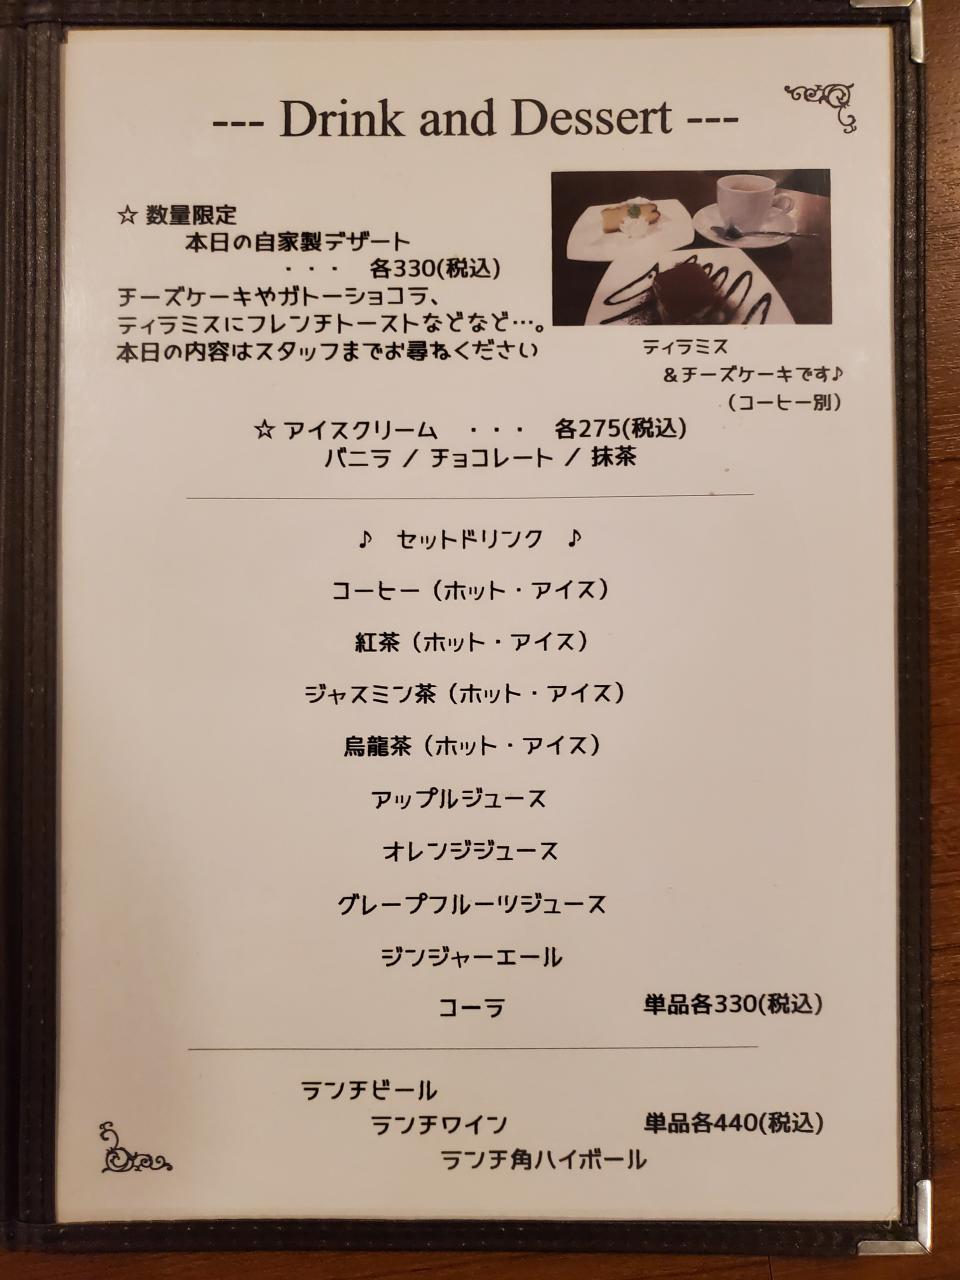 --- Drink and Dessert ---
☆ 数量限定
本日の自家製デザート
・・・ 各330(税込)
チーズケーキやガトーショコラ、
ティラミスにフレンチトーストなどなど…。
本日の内容はスタッフまでお尋ねください
ティラミス
＆チーズケーキです♪
（コーヒー別）
☆ アイスクリーム ・・・ 各275(税込)
バニラ / チョコレート / 抹茶
♪ セットドリンク ♪
コーヒー（ホット・アイス）
紅茶（ホット・アイス）
ジャスミン茶（ホット・アイス）
烏龍茶（ホット・アイス）
アップルジュース
オレンジジュース
グレープフルーツジュース
ジンジャーエール
コーラ 単品各330(税込)
ランチビール
ランチワイン 単品各440(税込)
ランチ角ハイボール